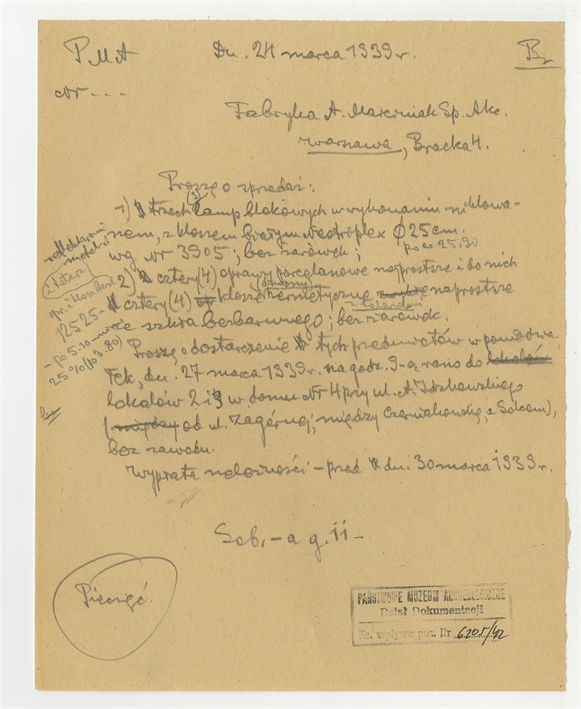 P M A Dn. 24 marca 1939 r.
Nr ...
Fabryka A. Marciniak Sp. Akc.
Warszawa, Bracka 4.
Proszę o sprzedaż:
1) trzech (3) lamp blokowych w wykonaniu niklowa-
nem, z kloszem białym Neotriplex Ø 25 cm.
wg. Nr 3905; bez żarówek; po zł 25.90
2) cztery (4) oprawy porcelanowe najprostsze i do nich
cztery (4) klosze hermetyczne najprostsze
ze szkła bezbarwnego; bez żarówek.
Proszę o dostarczenie tych przedmiotów w poniedzia-
łek, dn. 27 marca 1939 r. na godz. 9-ą rano do
lokalów 2 i 3 w domu Nr 4 przy ul. A. Idzkowskiego
(między od ul. Zagórnej, między Czerniakowską, a Solcem),
bez zawodu.
Wypłata należności – przed dn. 30 marca 1939 r.
Sob. – a g. 11 –
Pieczęć.
PAŃSTWOWE MUZEUM ARCHEOLOGICZNE
Dział Dokumentacji
Ks. wpływu poz. Nr 6205/42